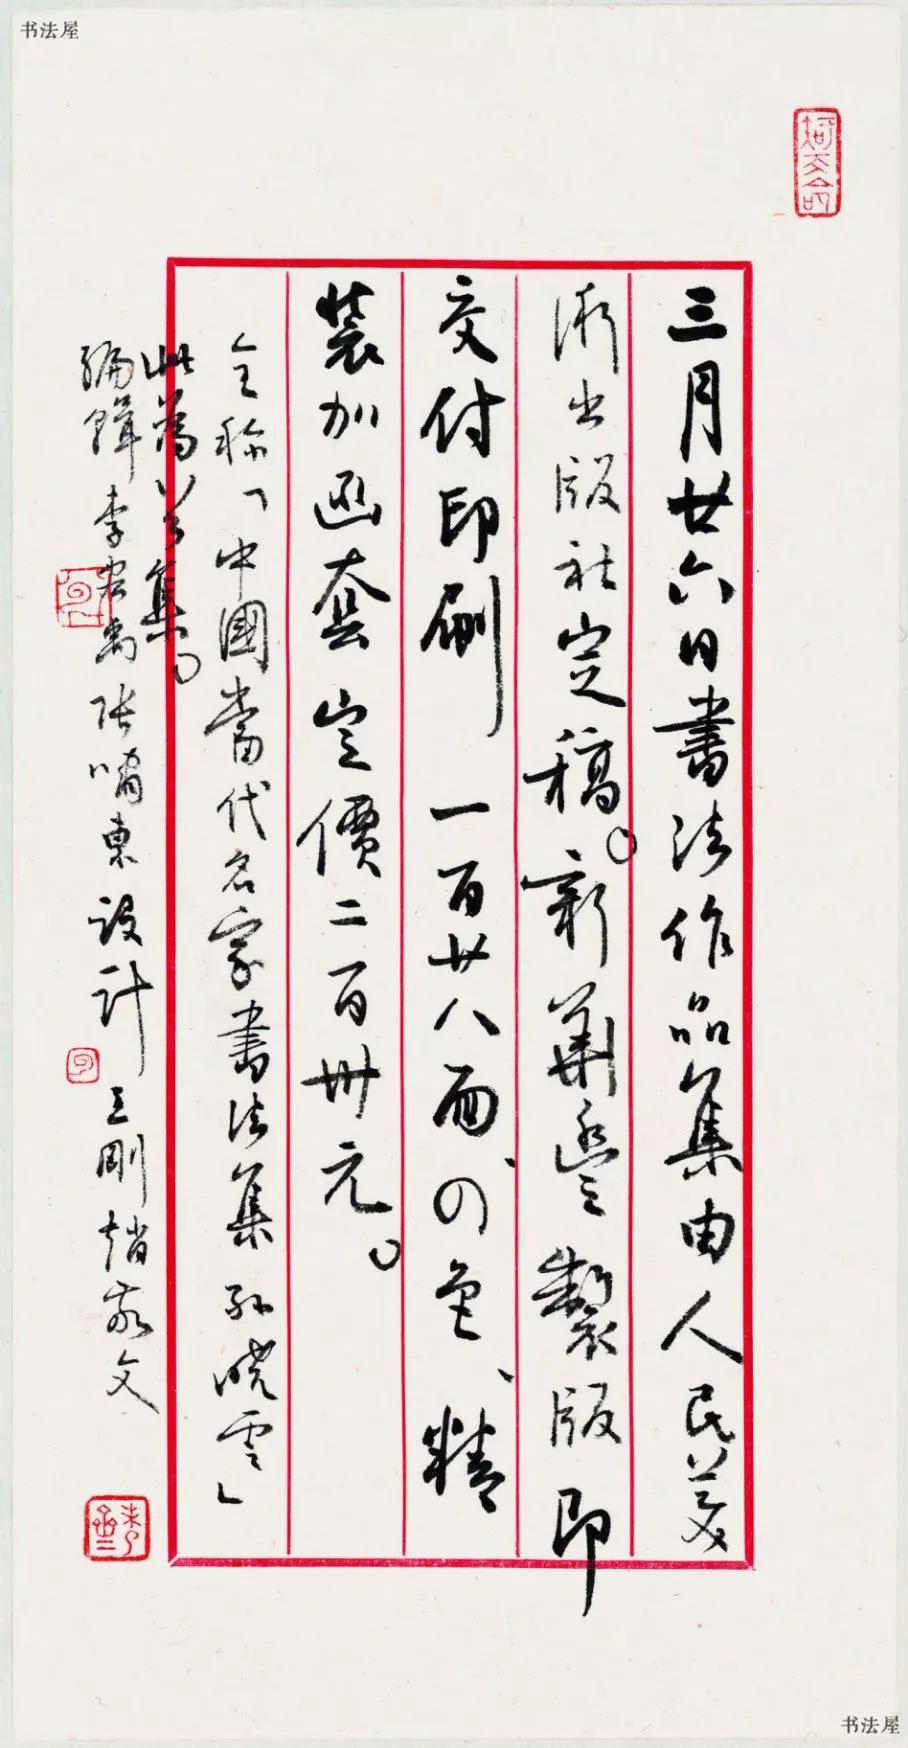 书法屋
三月廿六日書法作品集由人民美
術出版社定稿。新華豐製版即
交付印刷 一百廿八面、四色、精
裝加函套 定價二百卅元。
全称「中國當代名家書法集 孙晓雲」
此為公集。
编輯 李宏禹 張嘯東 設計 王剛 趙文
书法屋